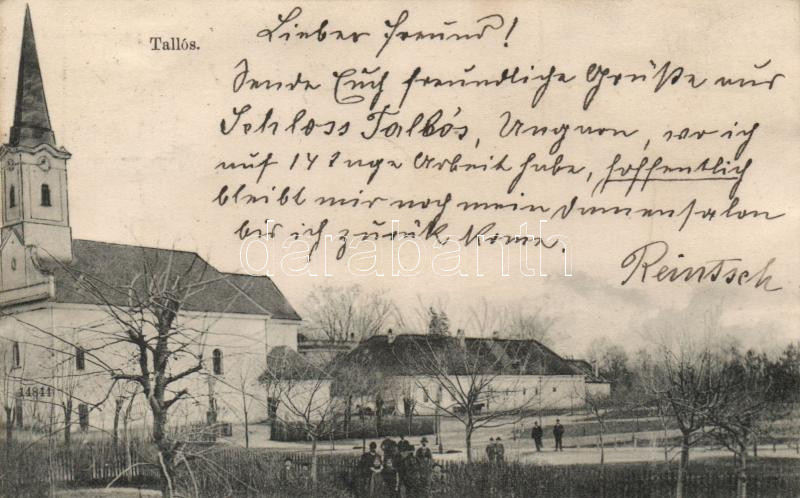 Tallós.
Lieber Freund!
Sende Euch freundliche Grüße aus
Schloss Tallós, Ungarn, wo ich
auf 14 Tage Arbeit habe, hoffentlich
bleibt mir noch mein Damensalon
bis ich zurük kome.
Reintsch
darabanth
14841